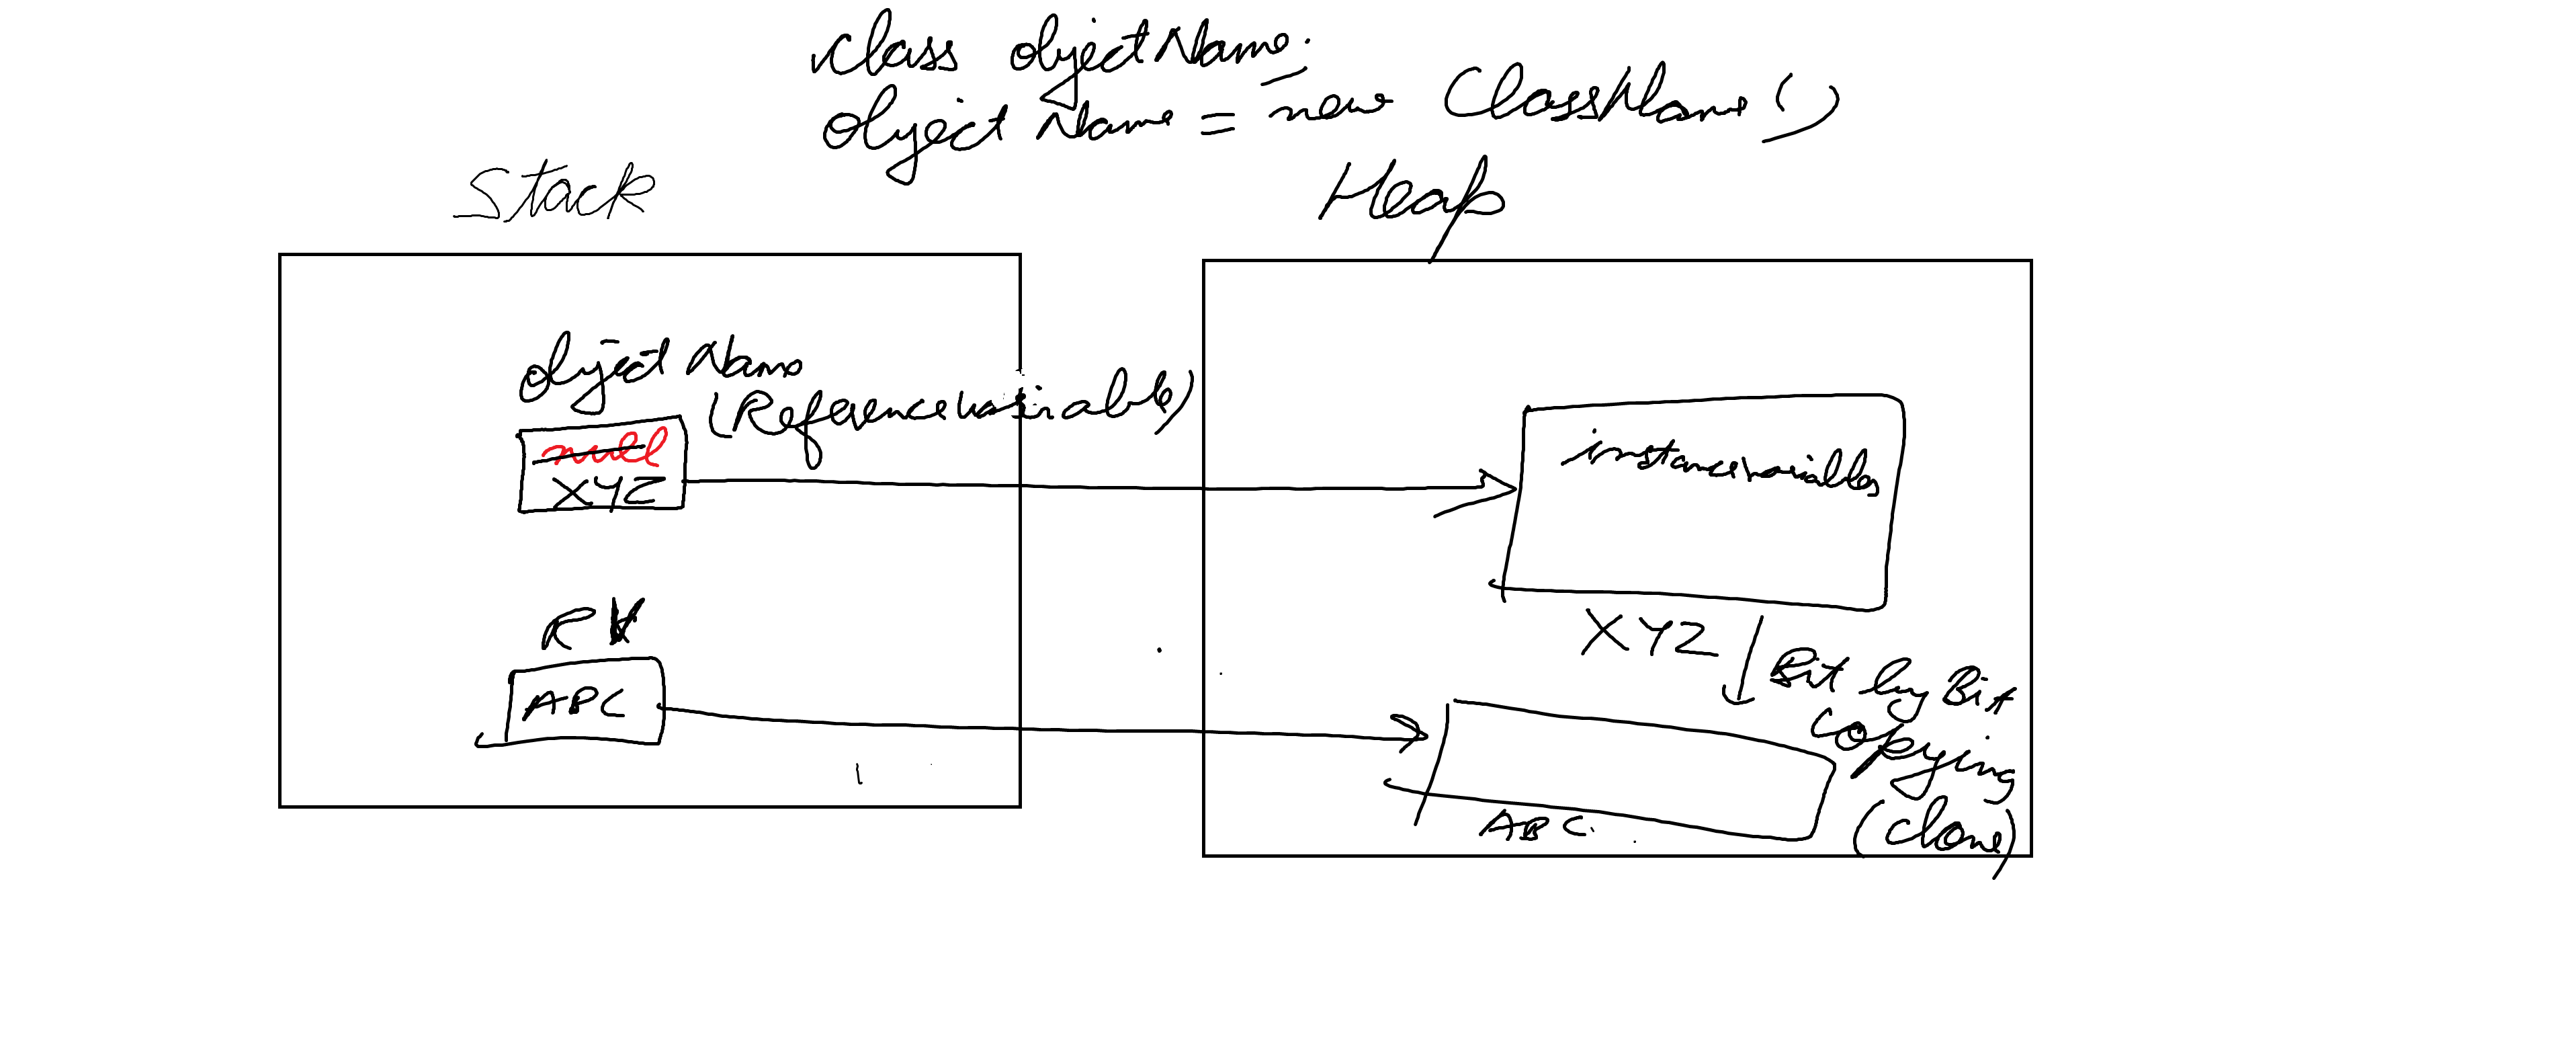 class objectName;
object Name = new ClassName()
Stack
Heap
object Name
(Reference variable)
null
XYZ
instance variables
RV
XYZ
Bit by Bit
copying
(clone)
ABC
ABC.